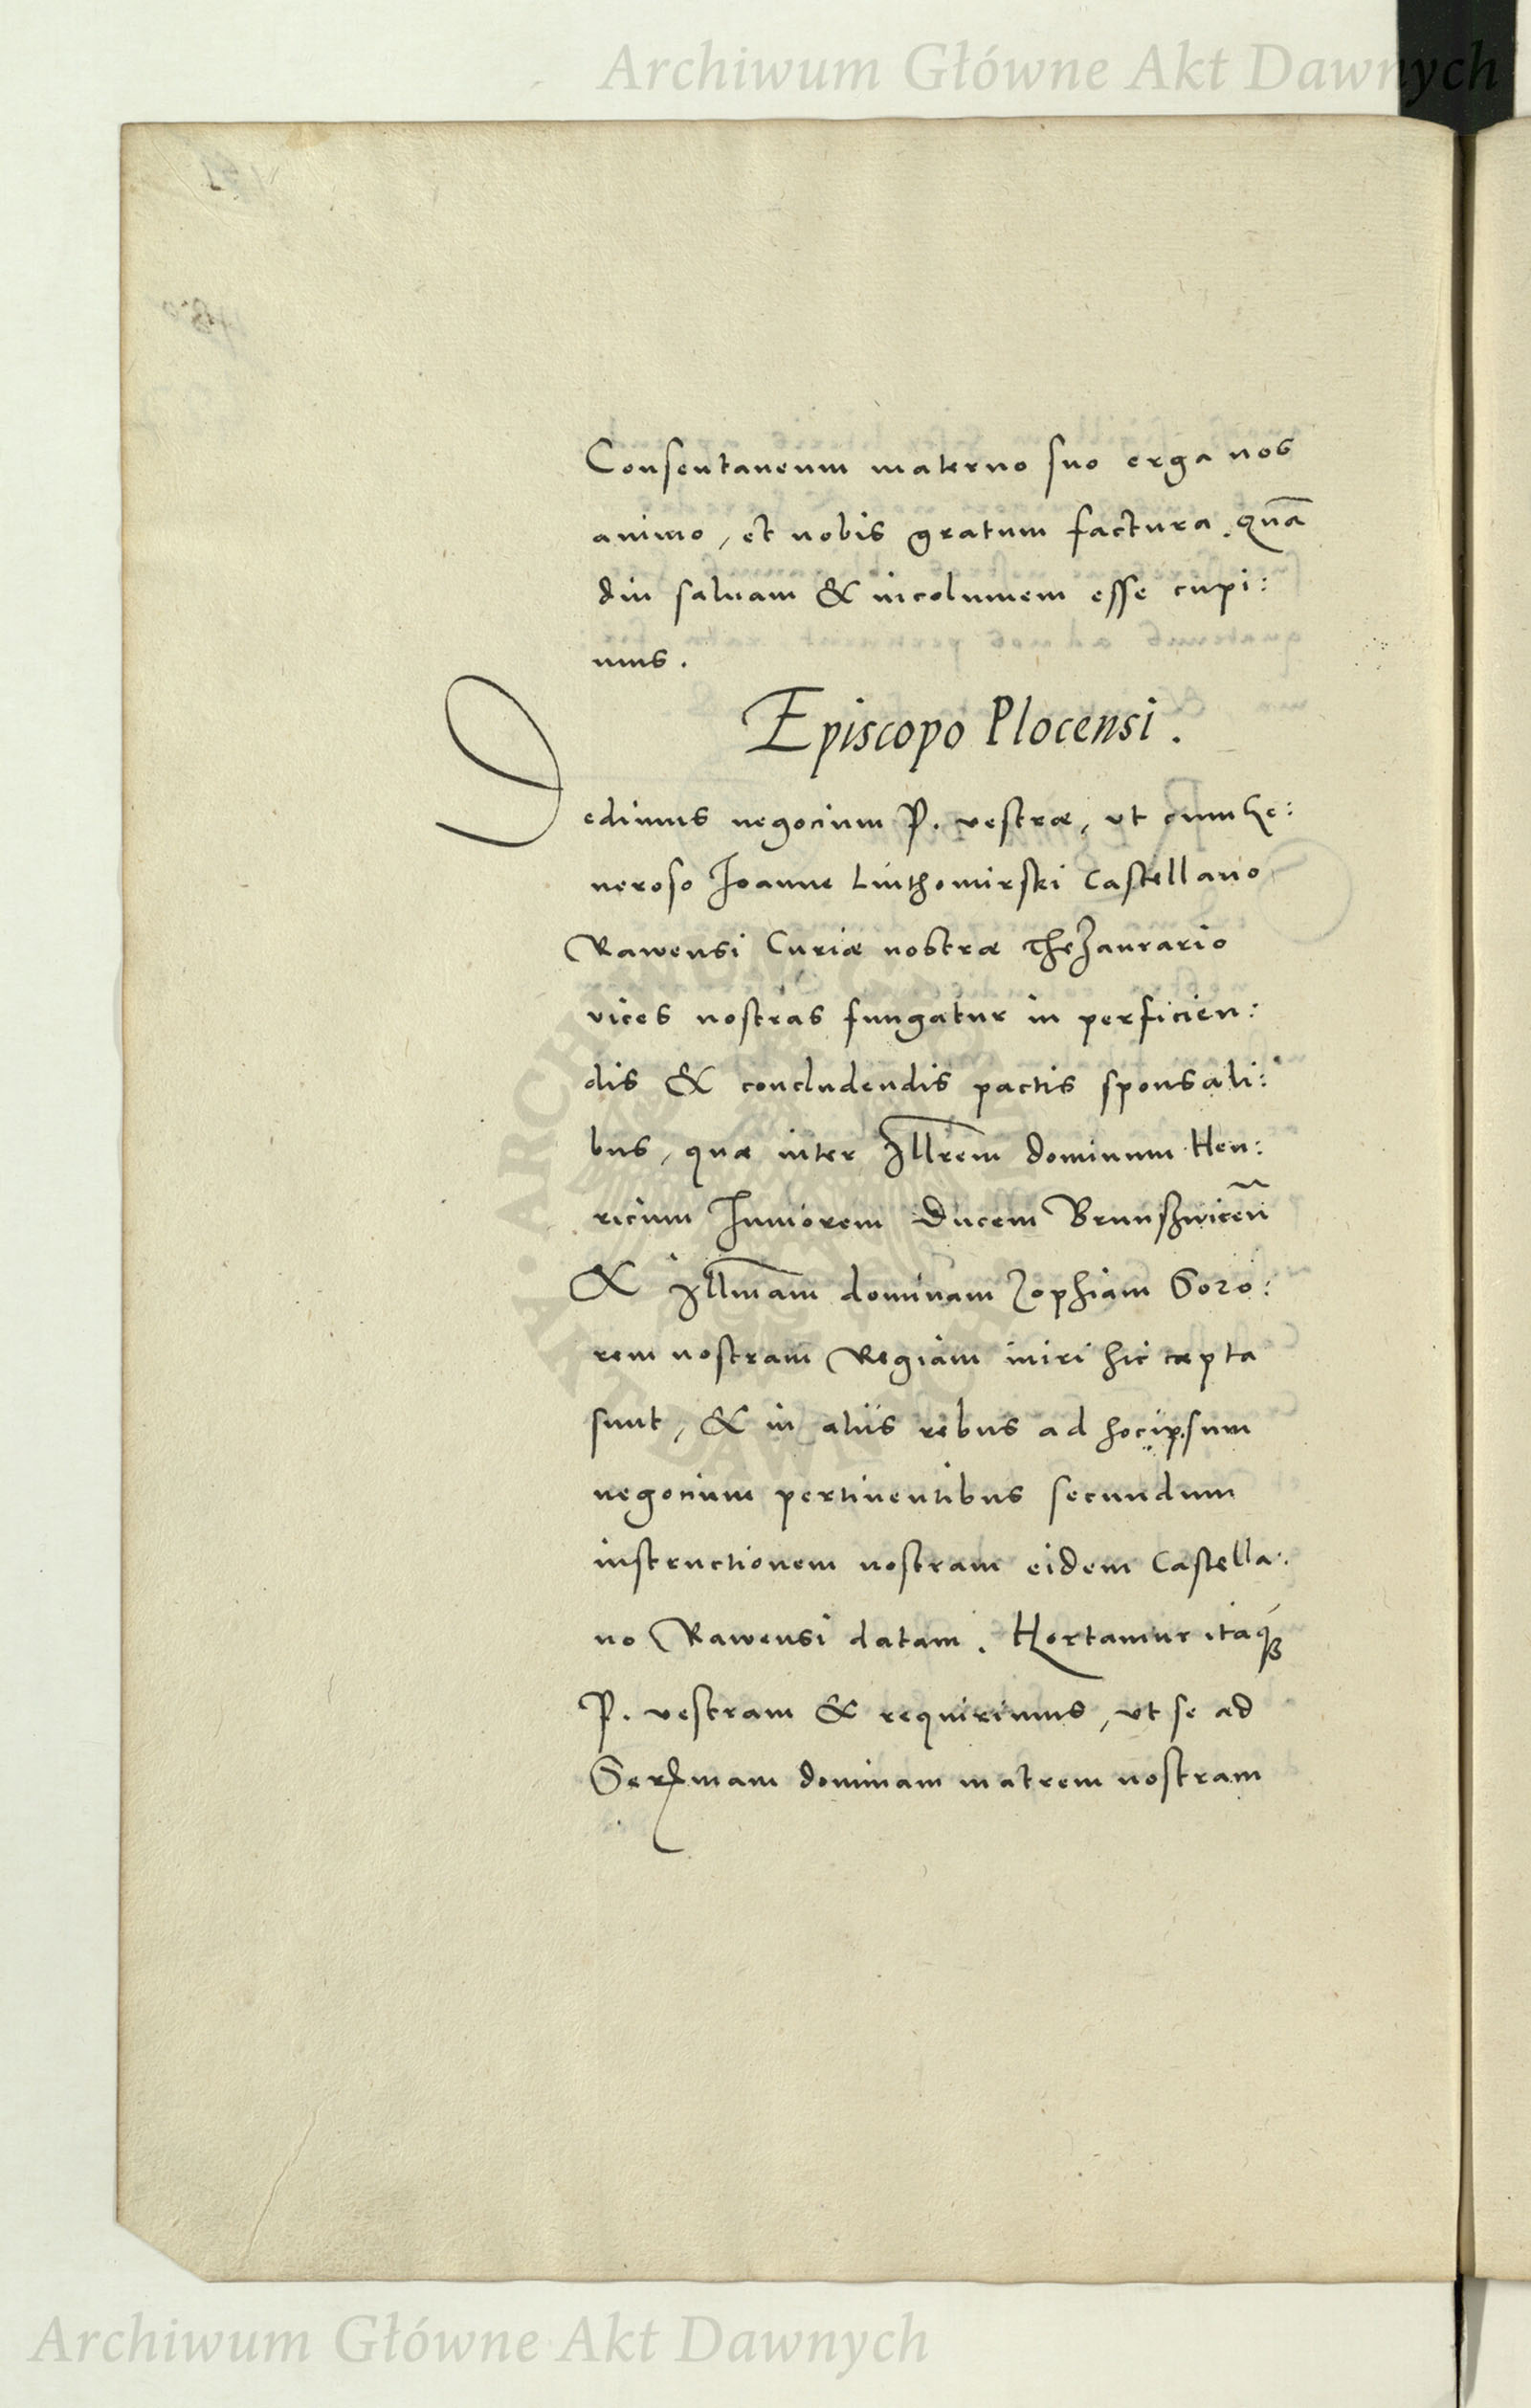 Archiwum Główne Akt Dawnych
Consentaneum materno suo erga nos
animo, et nobis gratum factura. quā
diu saluam & incolumem esse cupi:
mus.
Episcopo Plocensi.
Dedimus negocium P. vestræ, vt cum Ge:
neroso Joanne Luthomirski Castellano
Rawensi Curiæ nostræ Thezaurario
vices nostras fungatur in perficien:
dis & concludendis pactis sponsali:
bus, quæ inter Illrem dominum Hen:
ricum Iuniorem Ducem Brunszwicen̄
& Illmam dominam Zophiam Soro:
rem nostram Regiam iniri hic cæpta
sunt, & in alijs rebus ad hoc ipsum
negocium pertinentibus secundum
instructionem nostram eidem Castella:
no Rawensi datam. Hortamur itaqꝫ
P. vestram & requirimus, vt se ad
Serꝭmam dominam matrem nostram
ARCHIWUM
AKT DAWNYCH
Archiwum Główne Akt Dawnych